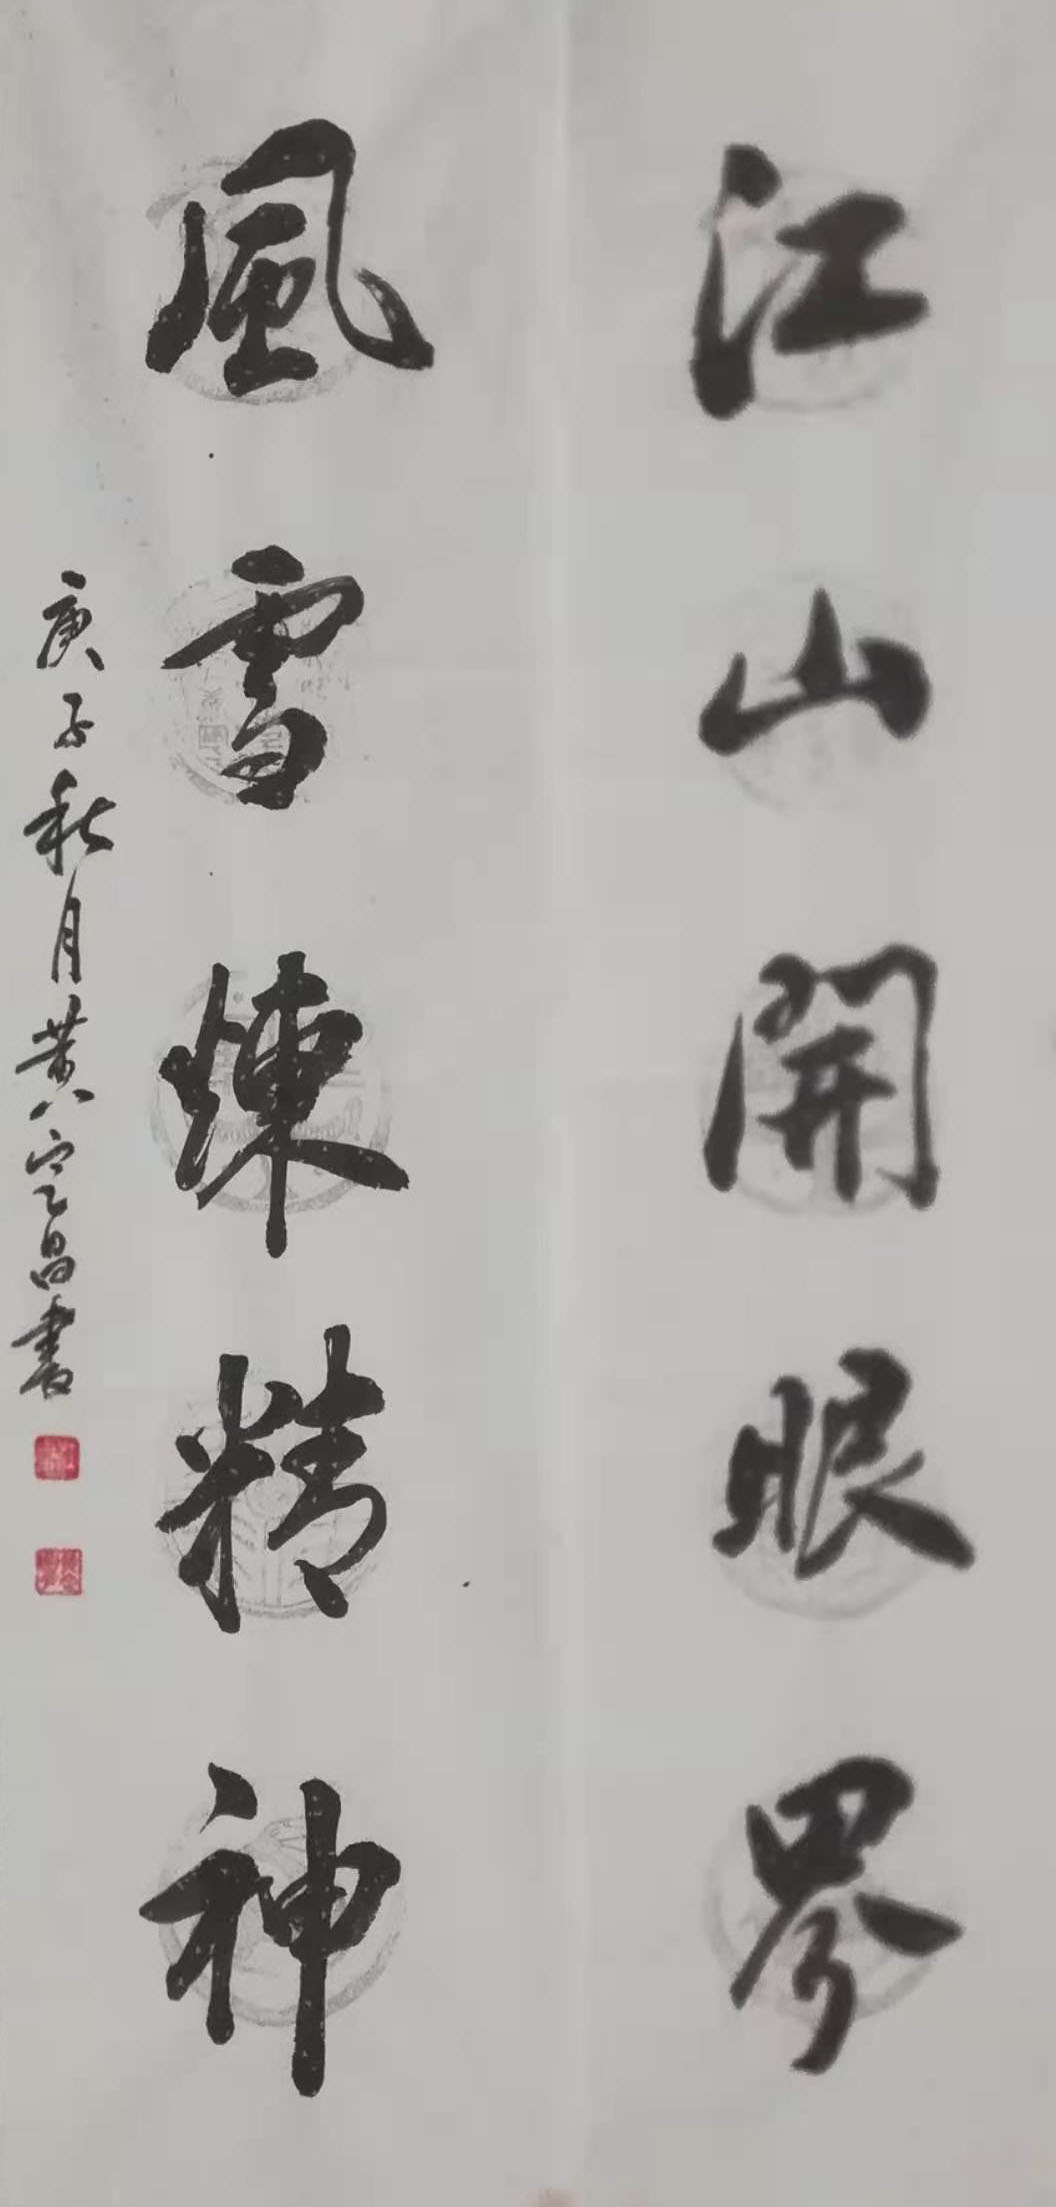 江山開眼界
風雪煉精神
庚子秋月黄宝昌書